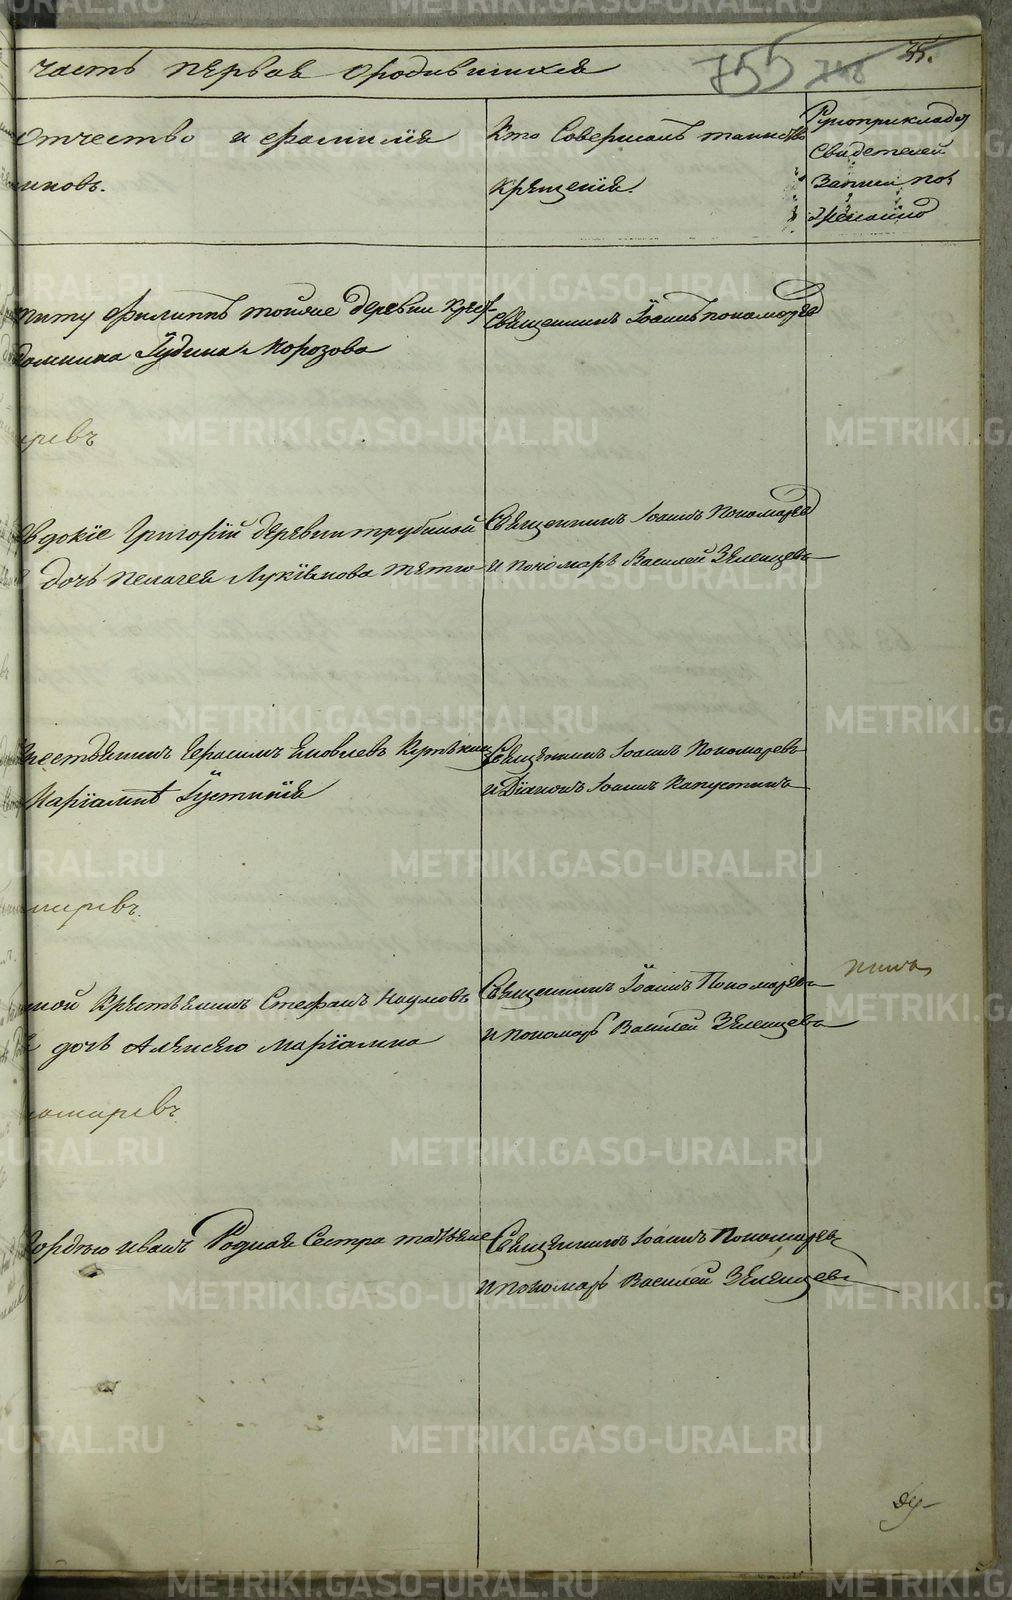 часть первая ородившихся
755
748
35.
отчество и фамилия
иковъ.
Кто Совершалъ таинство
крещенія.
Рукоприклад
Свидетелей
Записи по
желанію
Филиппъ тойже деревни
Домника Іудина Морозова
Священникъ Іоаннъ пономарев
ревъ
Григорій деревни трубиной
дочь пелагея Лукіянова
Священникъ Іоаннъ Пономарев
и пономарь Василей Зеленцевъ
крестьянинъ Герасимъ Яковлевъ
Маріамнѣ Іустинія
Священникъ Іоаннъ Пономаревъ
и Діаконъ Іоаннъ Капустинъ
маревъ.
ной Крестьянинъ Стефанъ Наумовъ
дочь Алексѣю маріамна
Священникъ Іоаннъ Пономаревъ
и пономарь Василей Зеленцевъ
номаревъ
иванъ Родная Сестра
Священникъ Іоаннъ Пономаревъ
и пономарь Василей Зеленцевъ
METRIKI.GASO-URAL.RU